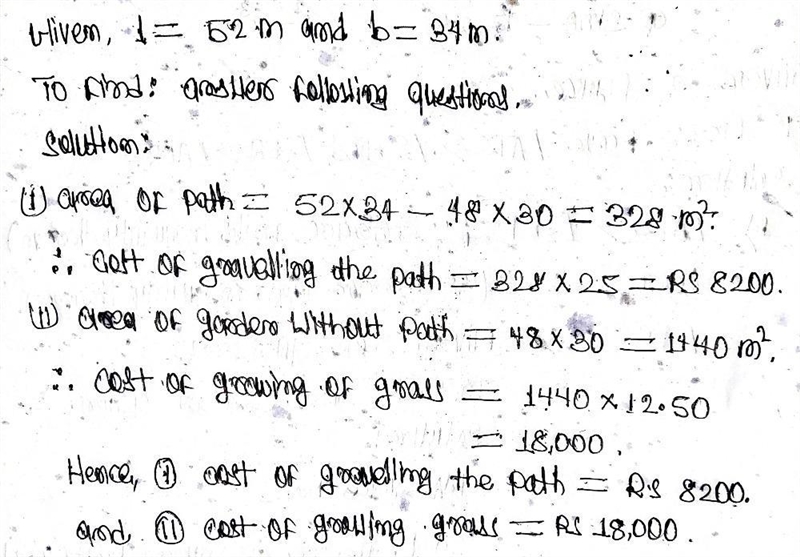 Given, l = 52 m and b = 34 m.
To Find: answers following questions.
Solution:
(i) area of path = 52×34 − 48×30 = 328 m².
∴ cost of gravelling the path = 328 × 25 = RS 8200.
(ii) area of garden without path = 48×30 = 1440 m².
∴ cost of growing of grass = 1440 × 12.50
= 18,000.
Hence, (i) cost of gravelling the path = Rs 8200.
and (ii) cost of growing grass = RS 18,000.